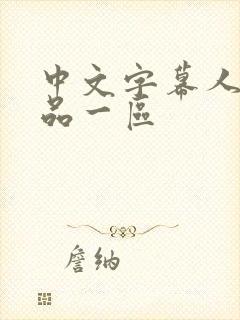 中文字幕人
品一區
詹納